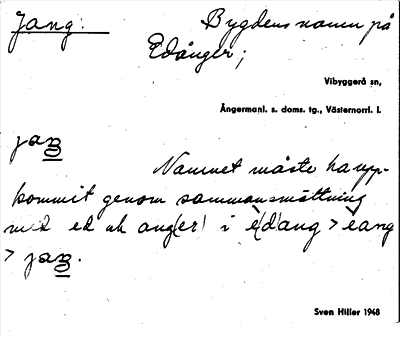 Jang. Bygdens namn på
Edånger;
Vibyggerå sn,
Ångermanl. s. doms. tg., Västernorrl. l.
jaŋ
Namnet måste ha upp-
kommit genom sammansmältning
med ed och ang(er) i e(d)ang > eang
> jaŋ.
Sven Hiller 1948